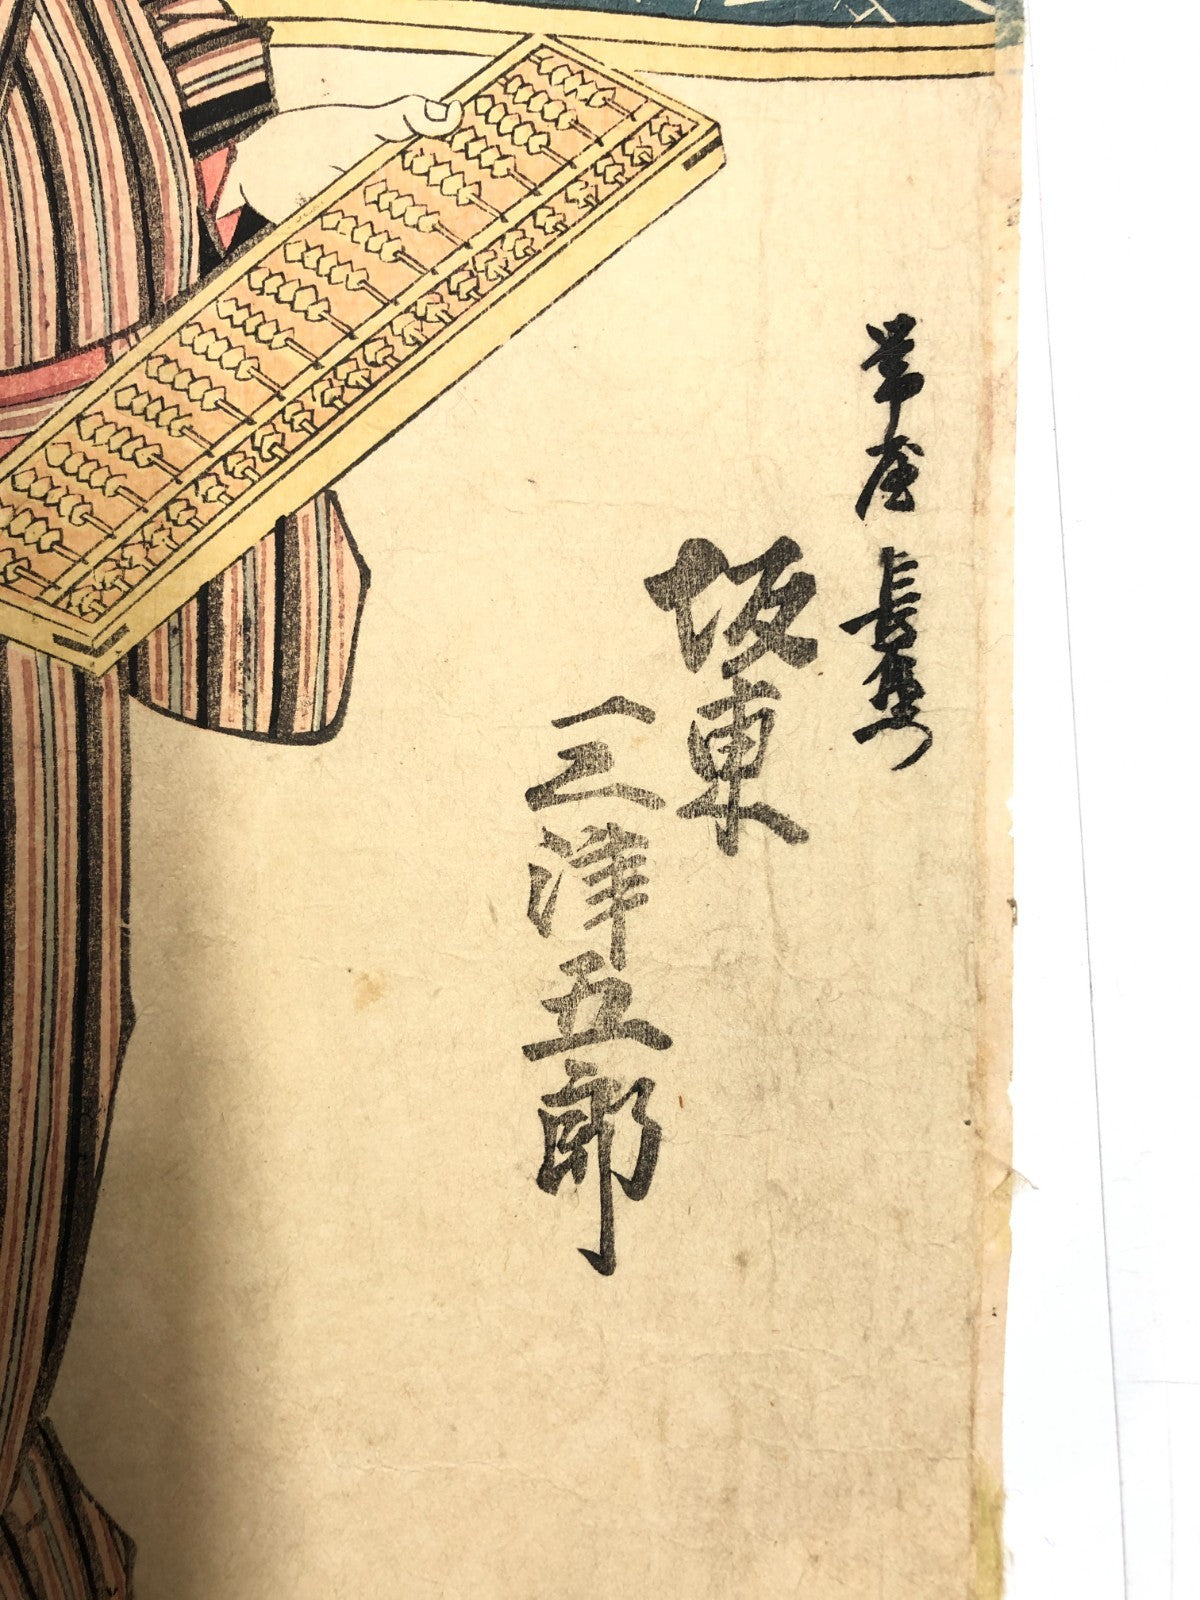 帯屋 長右衛門
坂東
三津五郎